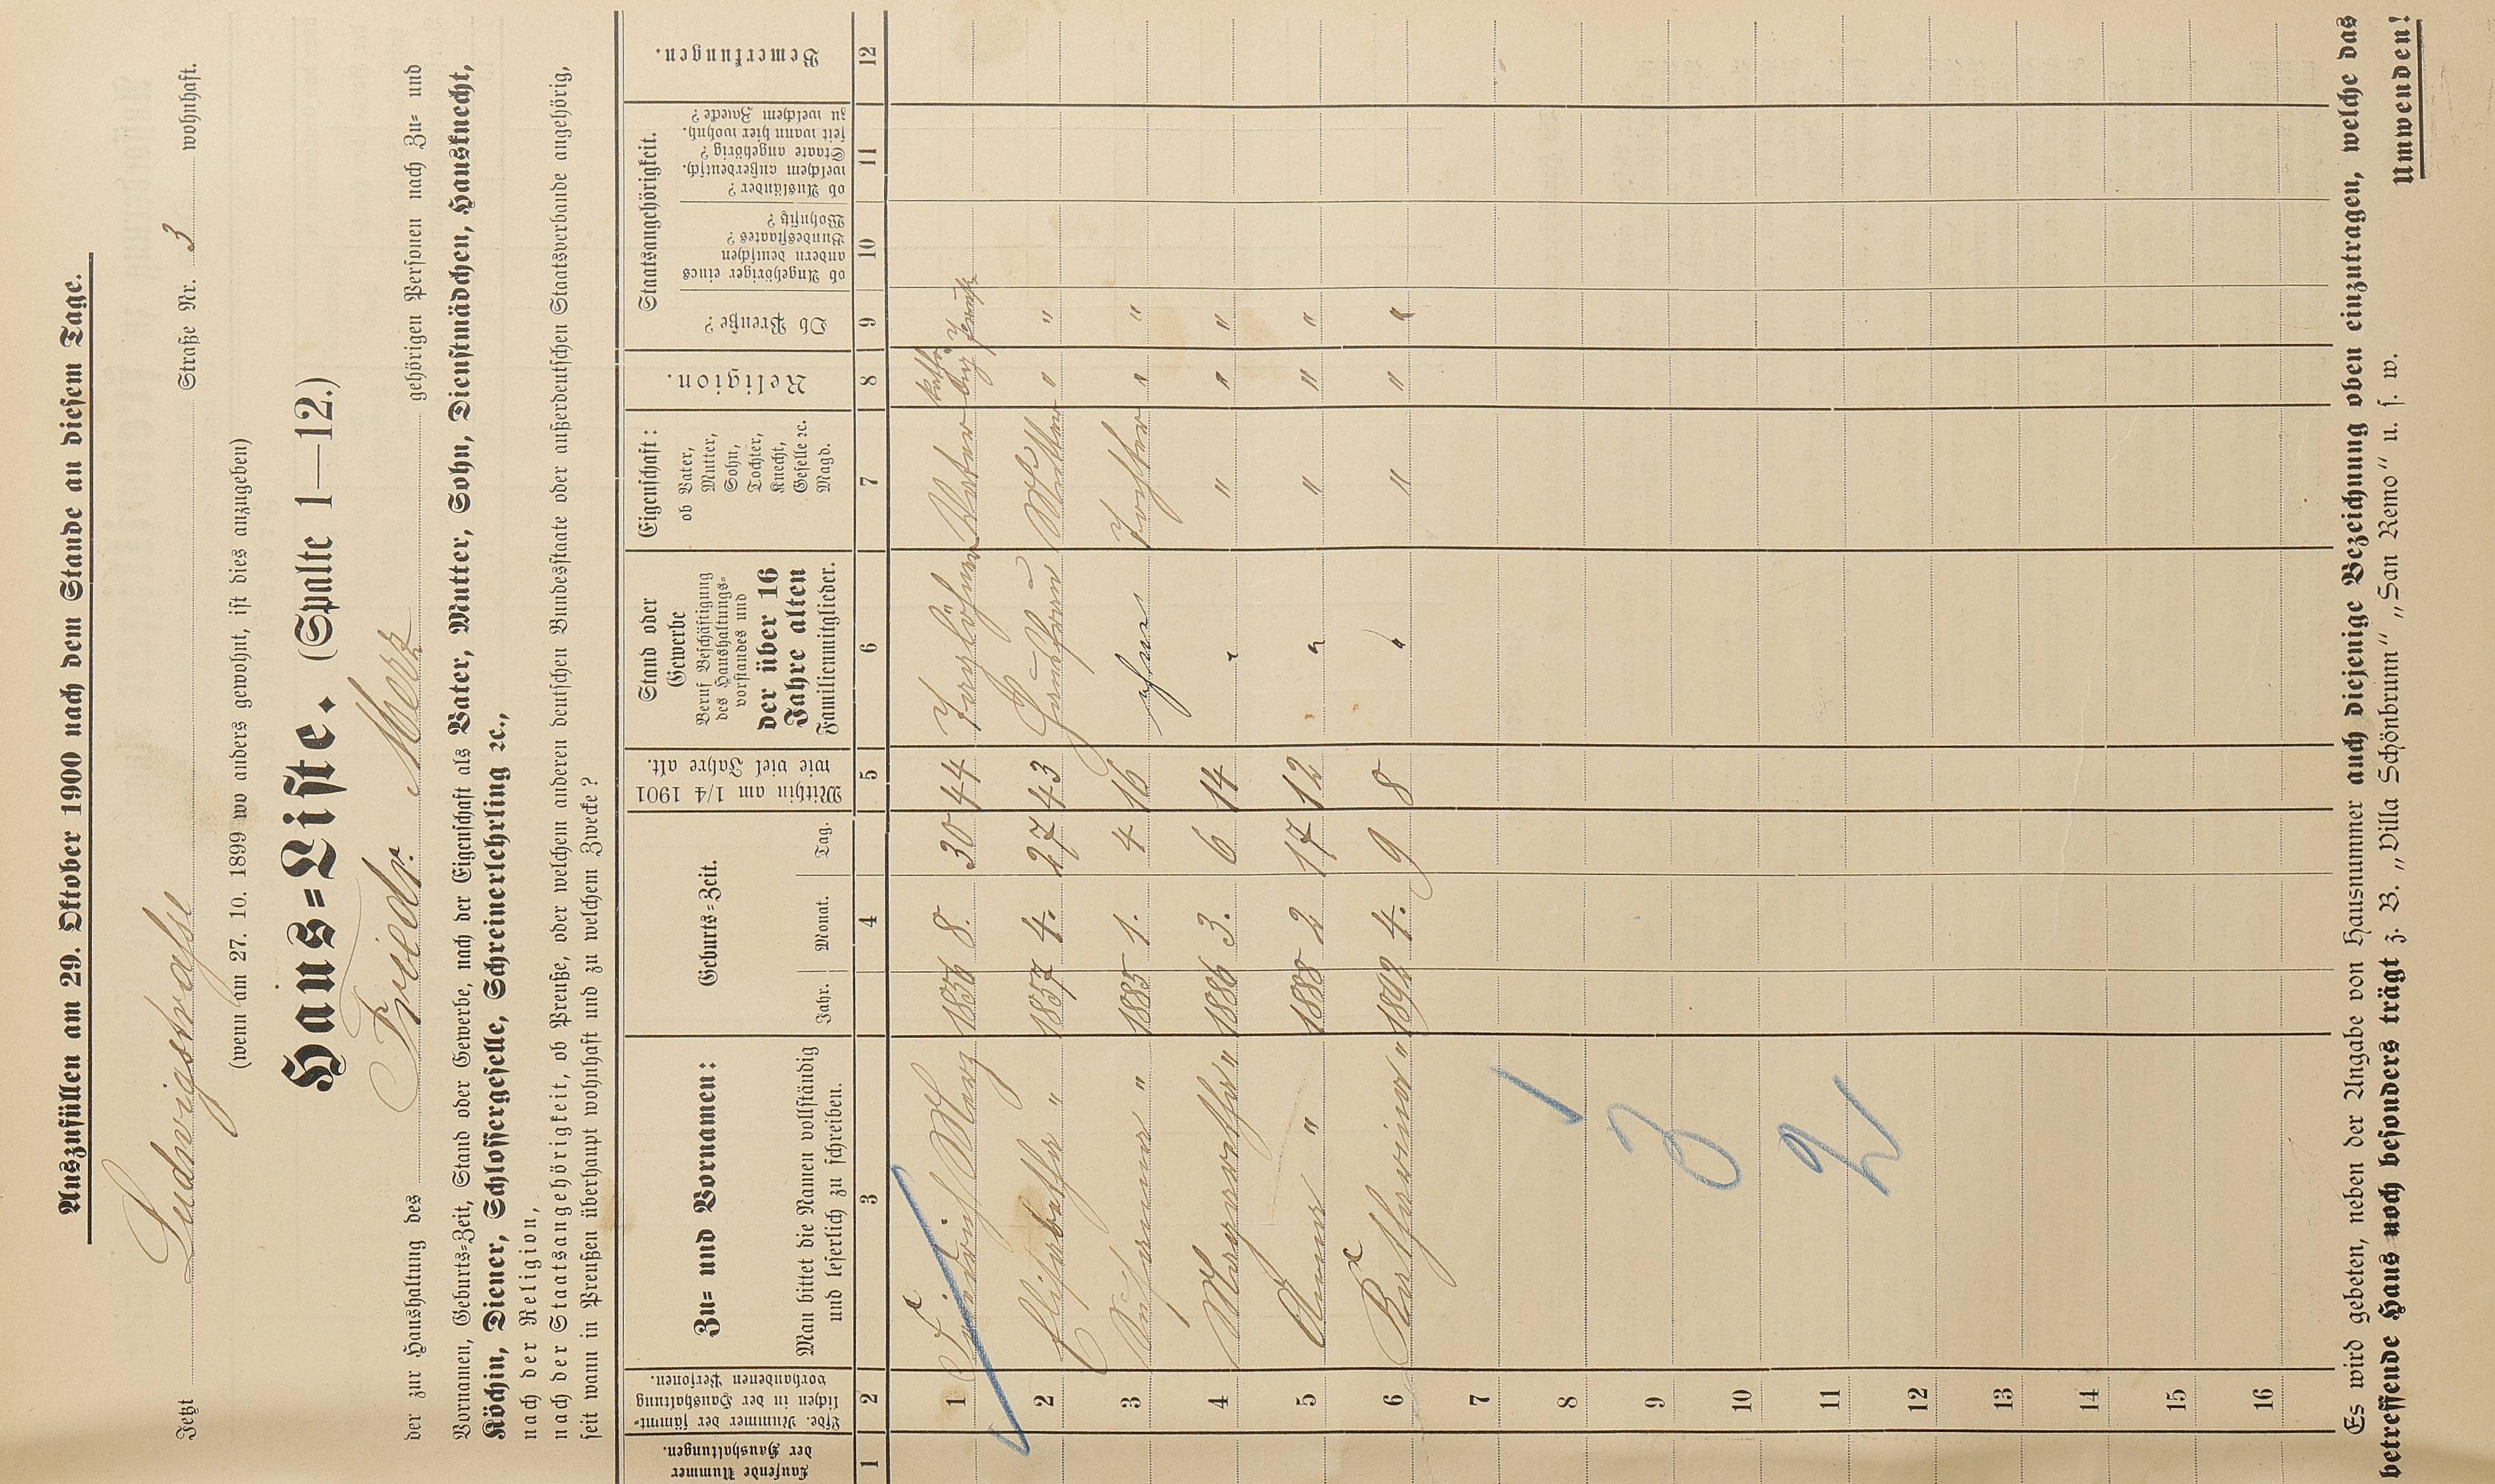 Auszufüllen am 29. Oktober 1900 nach dem Stande an diesem Tage.
Jetzt Ludwigstraße Straße Nr. 3 wohnhaft.
(wenn am 27. 10. 1899 wo anders gewohnt, ist dies anzugeben)
Haus=Liste. (Spalte 1—12.)
der zur Haushaltung des Friedr. Merz gehörigen Personen nach Zu= und
Vornamen, Geburts=Zeit, Stand oder Gewerbe, nach der Eigenschaft als Vater, Mutter, Sohn, Dienstmädchen, Hausknecht,
Köchin, Diener, Schlossergeselle, Schreinerlehrling ꝛc.,
nach der Religion,
nach der Staatsangehörigkeit, ob Preuße, oder welchem anderen deutschen Bundesstaate oder außerdeutschen Staatsverbande angehörig,
seit wann in Preußen überhaupt wohnhaft und zu welchem Zwecke?
Laufende Nummer der Haushaltungen.
Lfde. Nummer der sämmt=
lichen in der Haushaltung
vorhandenen Personen.
Zu= und Vornamen:
Man bittet die Namen vollständig
und leserlich zu schreiben.
Geburts=Zeit.
Jahr. Monat. Tag.
Mithin am 1/4 1901
wie viel Jahre alt.
Stand oder
Gewerbe
Beruf Beschäftigung
des Haushaltungs=
vorstandes und
der über 16
Jahre alten
Familienmitglieder.
Eigenschaft:
ob Vater,
Mutter,
Sohn,
Tochter,
Knecht,
Geselle ꝛc.
Magd.
Religion.
Staatsangehörigkeit.
Ob Preuße?
ob Angehöriger eines
andern deutschen
Bundesstaates?
Wohnsitz?
ob Ausländer?
welchem außerdeutsch.
Staate angehörig?
seit wann hier wohnh.
zu welchem Zwecke?
Bemerkungen.
1 2 3 4 5 6 7 8 9 10 11 12
1 Friedrich Merz 1856 8. 30 44 Taglöhner Vater kath.
2 Elisabetha " 1857 4. 27 43 Hausfrau Mutter " "
3 " 1885 1. 4 16 ohne Tochter " "
4 Margaretha " 1886 3. 6 14 " " " "
5 Anna " 1888 2 17 12 " " " "
6 Katharina " 1892 4. 9 8 " " " "
7
8
9
10
11
12
13
14
15
16
Es wird gebeten, neben der Angabe von Hausnummer auch diejenige Bezeichnung oben einzutragen, welche das
betreffende Haus noch besonders trägt z. B. „Villa Schönbrunn" „San Remo" u. s. w.
Umwenden!